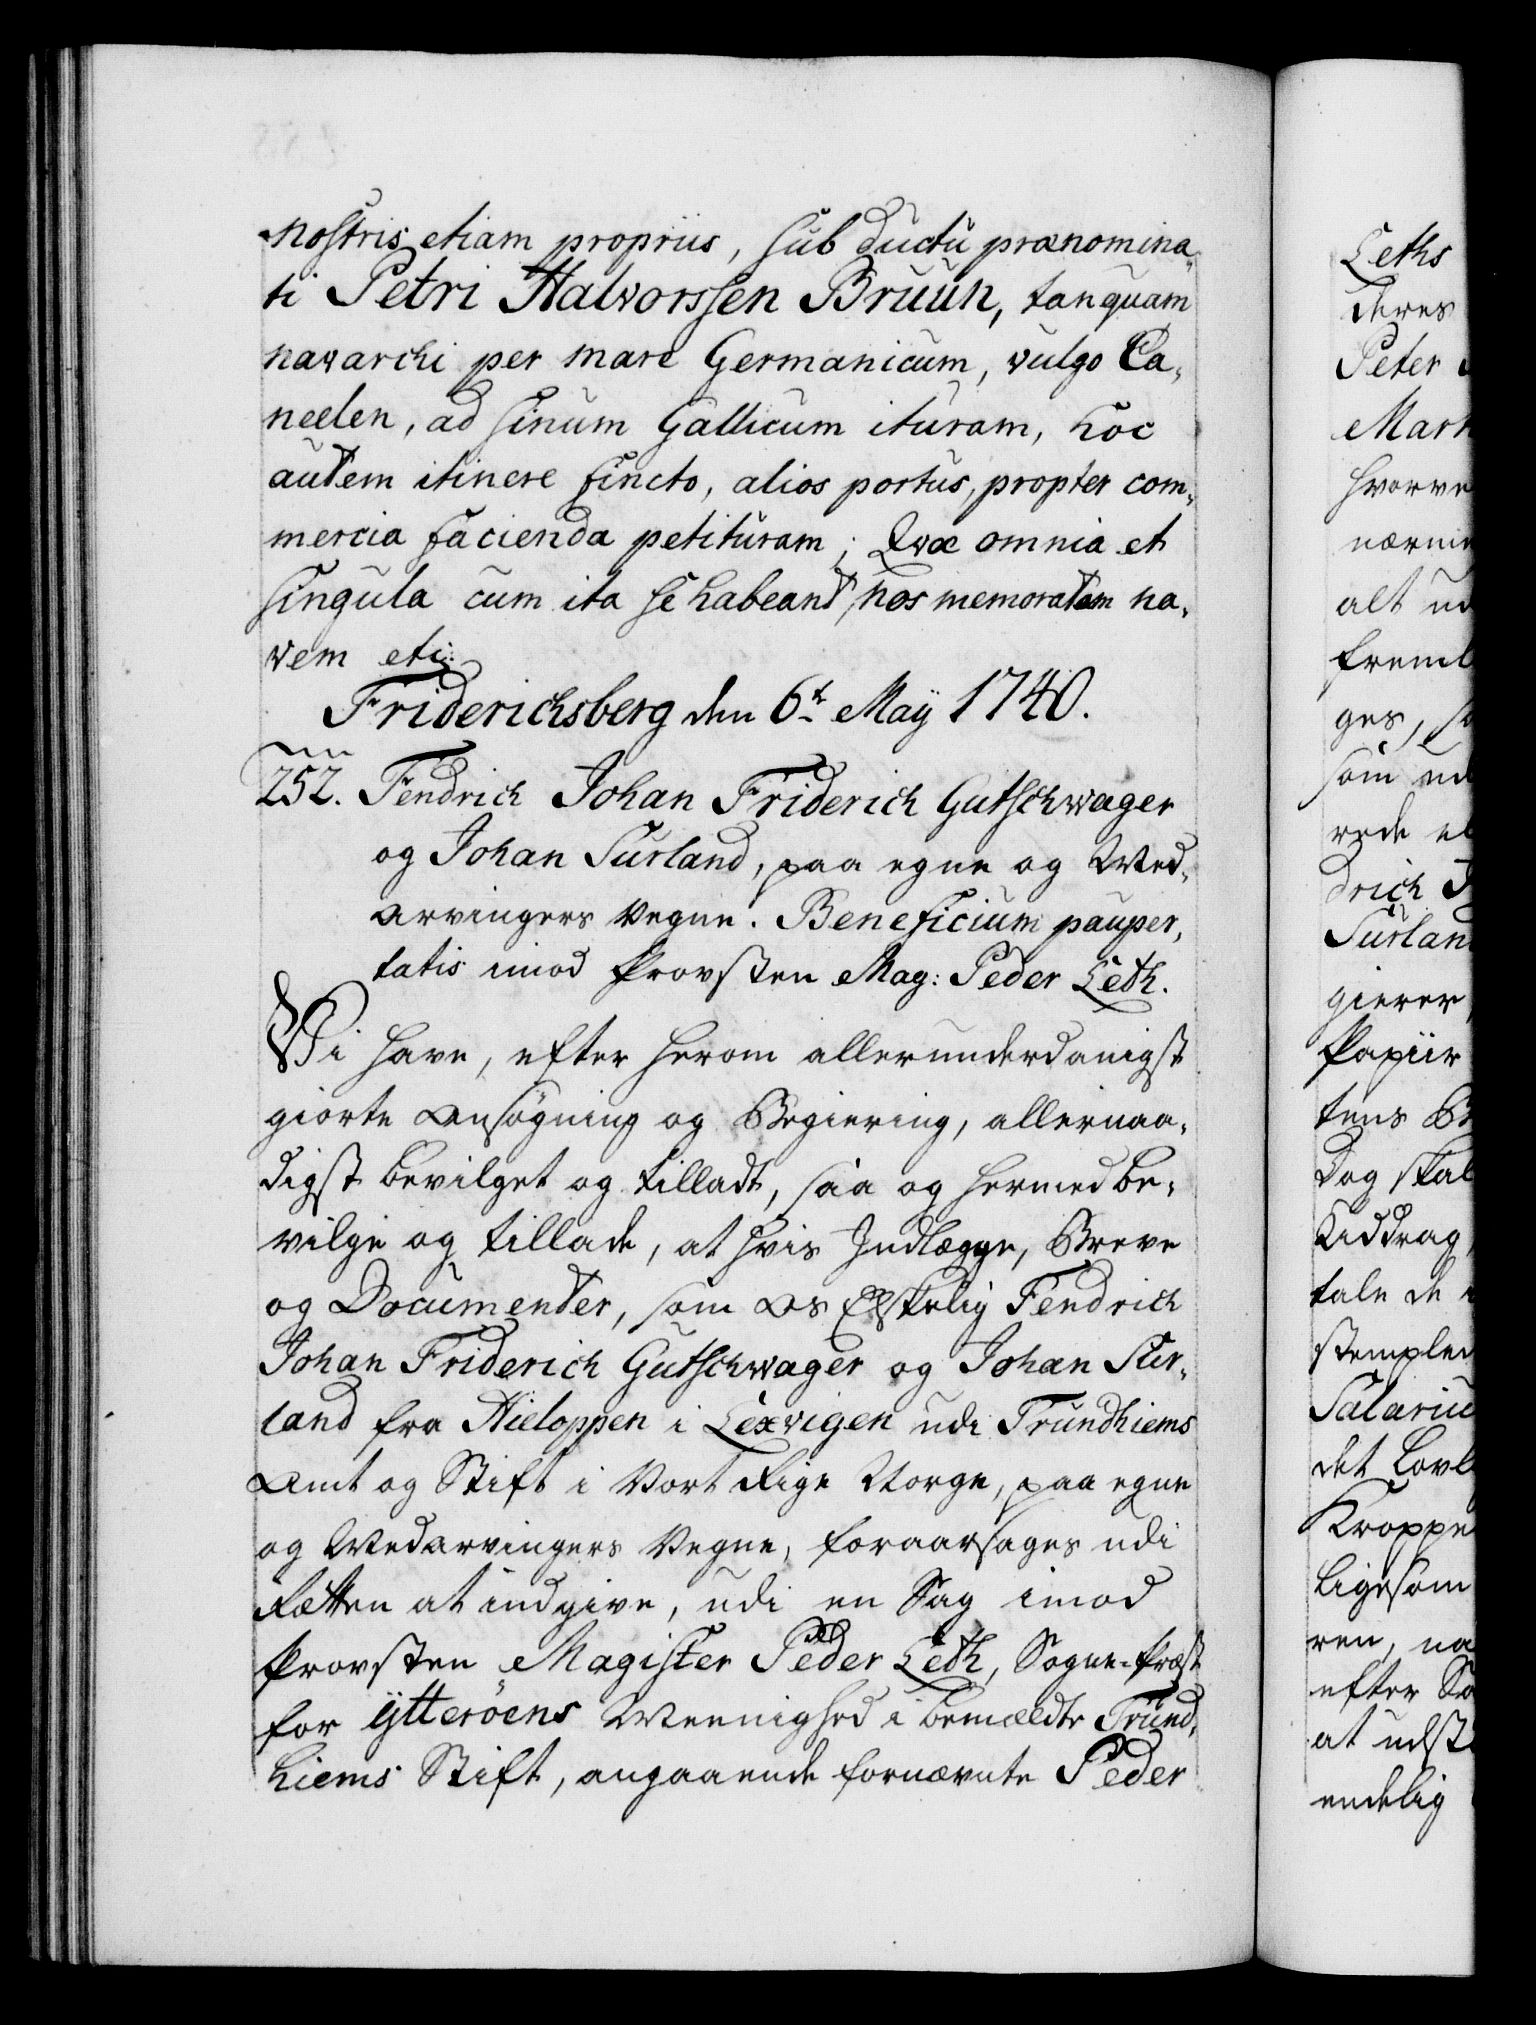 nostris etiam propriis, sub ductu prænomina-
ti Petri Halvorssen Bruun, tanquam
navarchi per mare Germanicum, vulgo Ca-
neelen, ad sinum Gallicum ituram, hoc
autem itinere fincto, alios portus, propter com-
mercia facienda petituram; Qvæ omnia et
singula cum ita se habeant, nos memoratam na-
vem etc:
Friderichsberg den 6t May 1740.
252. Fendrich Johan Friderich Gutschwager
og Johan Surland, paa egne og Med-
arvingers Vegne. Beneficium pauper-
tatis imod Provsten Mag: Peder Leth.
Vi have, efter herom allerunderdanigst
giorte Ansøgning og Begiering, allernaa-
digst bevilget og tilladt, saa og hermed be-
vilge og tillade, at hvis Indlægge, Breve
og Documenter, som Os Elskelig Fendrich
Johan Friderich Gutschwager og Johan Sur-
land fra Hieloppen i Lexvigen udi Trundhiems
Amt og Stift i Vort Rige Norge, paa egne
og Medarvingers Vegne, foraarsages udi
Retten at indgive, udi en Sag imod
Provsten Magister Peder Leth, Sogne-Præst
for Ytterøens Meenighed i bemældte Trund-
hiems Stift, angaaende fornævnte Peder
Leths
deres
Peter
hvorve
alt
ges,
som
drich
Surlan
gierer
Papiir
tens
Dog skal
Uddrag
tale de
stemplen
Salariu
det Lovl
Kroppe
ligesom
ren, na
efter Sa
at udst
endelig